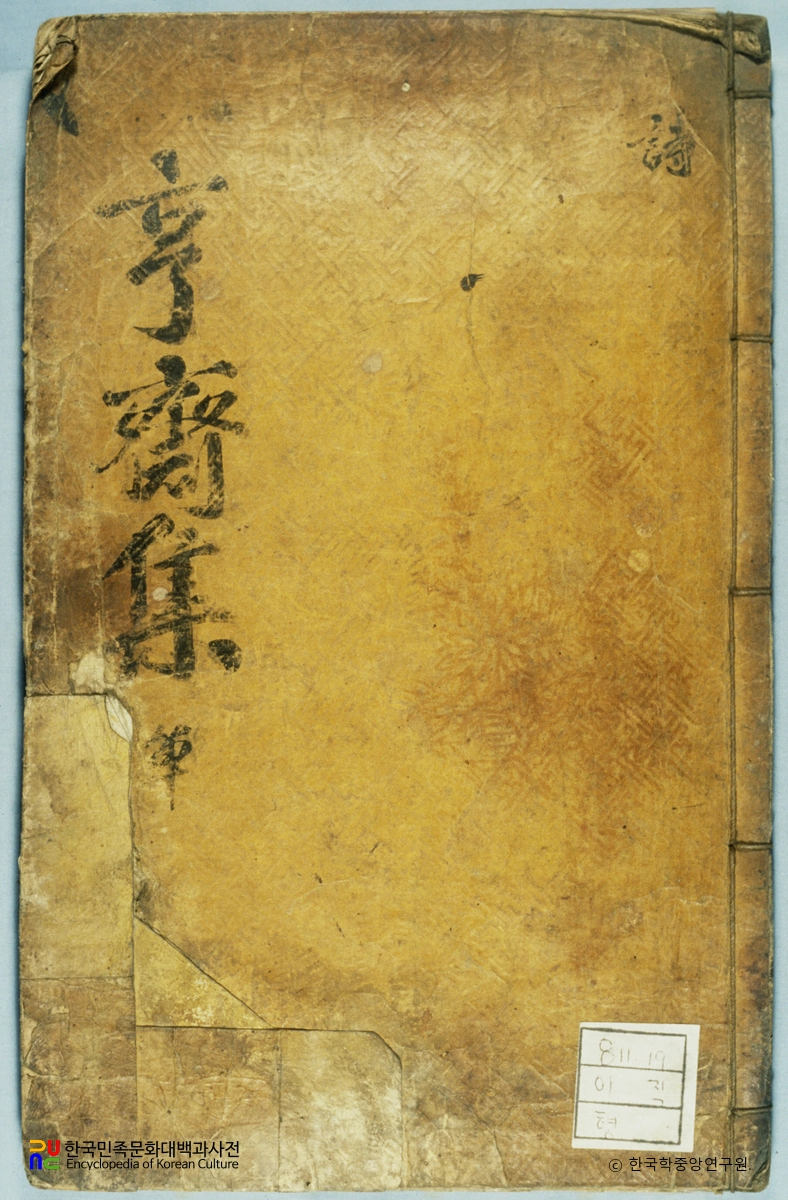 詩
亨齋集 單
811.19
이 직
형
한국민족문화대백과사전
Encyclopedia of Korean Culture
© 한국학중앙연구원